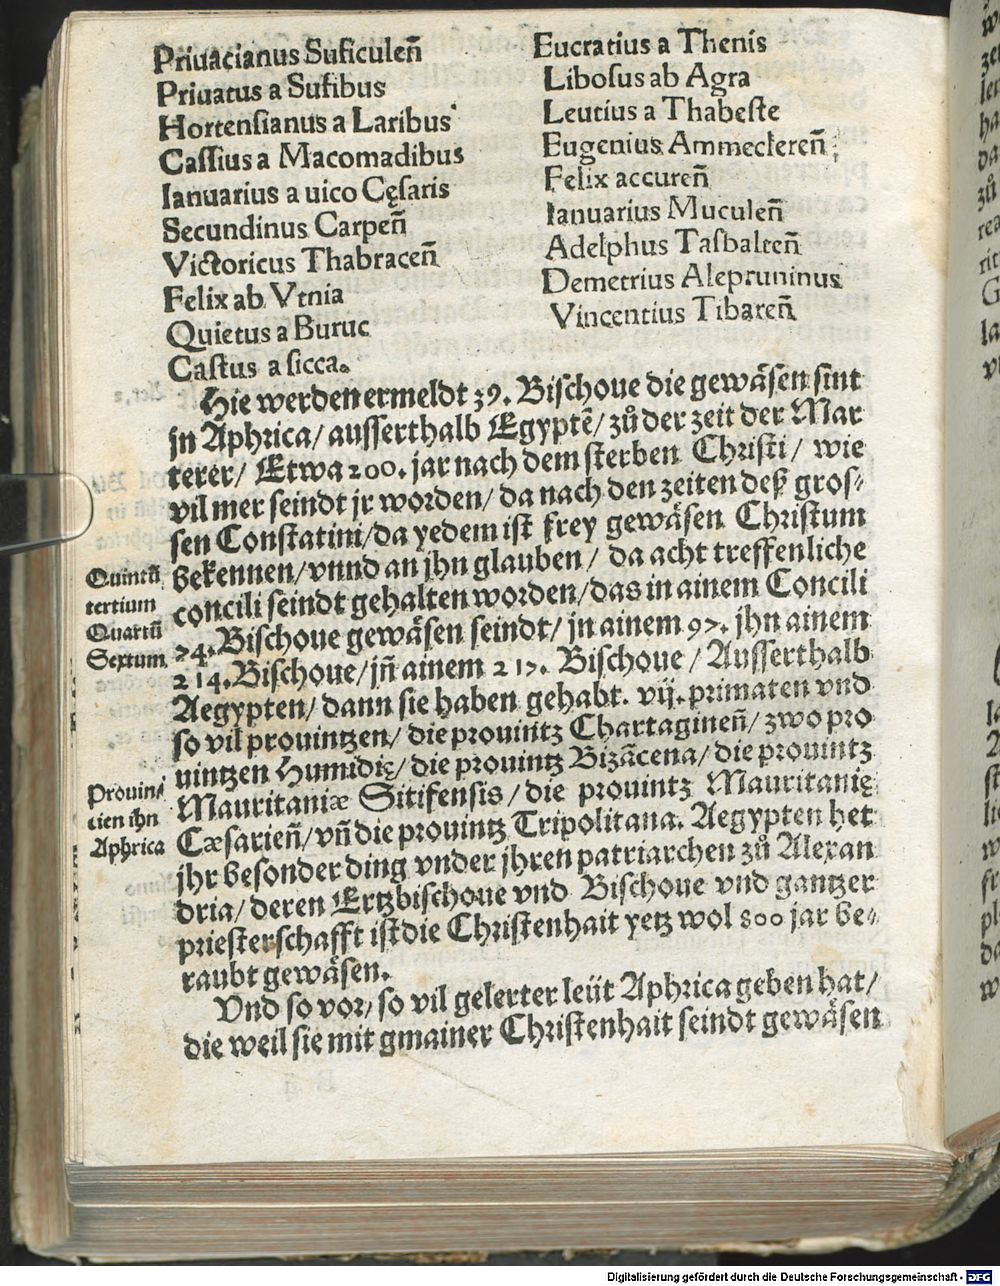 Priuacianus Suficuleñ
Priuatus a Sufibus
Hortensianus a Laribus
Cassius a Macomadibus
Ianuarius a uico Cęsaris
Secundinus Carpeñ
Victoricus Thabraceñ
Felix ab Vtnia
Quietus a Buruc
Castus a sicca.
Eucratius a Thenis
Libosus ab Agra
Leutius a Thabeste
Eugenius Ammedereñ
Felix accureñ
Ianuarius Muculeñ
Adelphus Tasbalteñ
Demetrius Alepruninus
Vincentius Tibareñ
Hie werden ermeldt 39. Bischoue die gewäsen sint
jn Aphrica/ ausserthalb Egyptẽ/ zů der zeit der Mar
terer/ Etwa 200. jar nach dem sterben Christi/ wie
vil mer seindt jr worden/ da nach den zeiten deß gros⸗
sen Constatini/ da yedem ist frey gewäsen Christum
bekennen/ vnnd an jhn glauben/ da acht treffenliche
concili seindt gehalten worden/ das in ainem Concili
74. Bischoue gewäsen seindt/ jn ainem 97. jhn ainem
214. Bischoue/ jñ ainem 217. Bischoue/ Ausserthalb
Aegypten/ dann sie haben gehabt. vij. primaten vnd
so vil prouintzen/ die prouintz Chartagineñ/ zwo pro
uintzen Humidię/ die prouintz Bizãcena/ die prouintz
Mauritaniæ Sitifensis/ die prouintz Mauritanię
Cæsarieñ/ vñ die prouintz Tripolitana. Aegypten het
jhr besonder ding vnder jhren patriarchen zů Alexan
dria/ deren Ertzbischoue vnd Bischoue vnd gantzer
priesterschafft ist die Christenhait yetz wol 800 jar be⸗
raubt gewäsen.
Vnd so vor/ so vil gelerter leüt Aphrica geben hat/
die weil sie mit gmainer Christenhait seindt gewäsen
Quintũ
tertium
Quartũ
Sextum
Prouin⸗
cien ihn
Aphrica
Digitalisierung gefördert durch die Deutsche Forschungsgemeinschaft - DFG